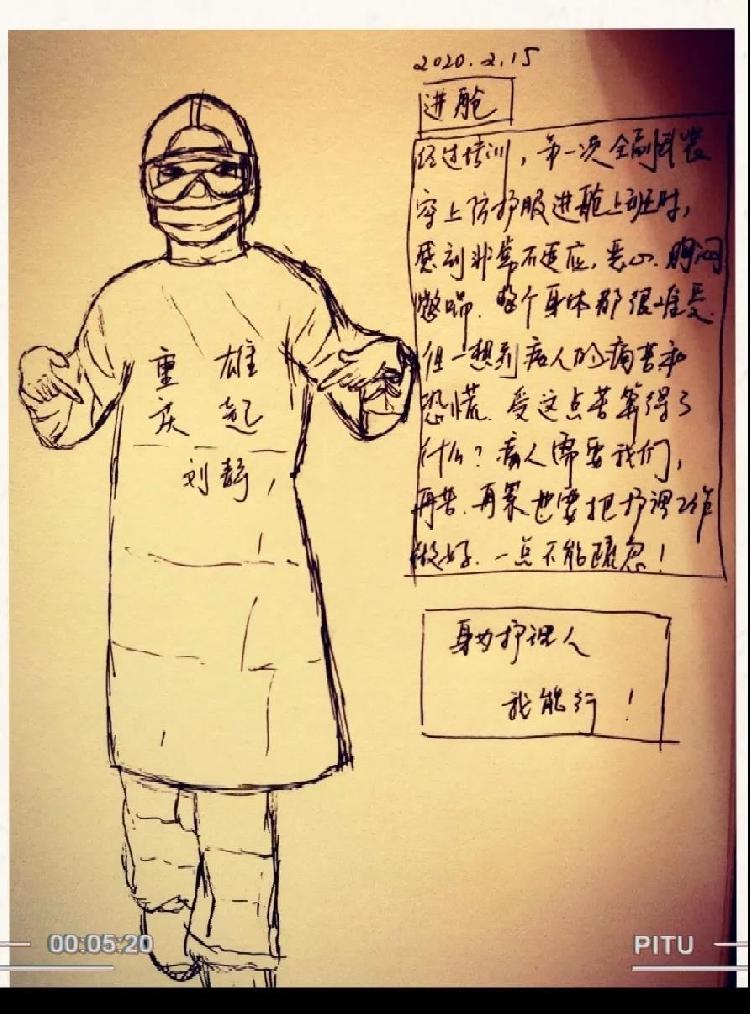 2020.2.15
进舱
经过培训，第一次全副武装
穿上防护服进舱上班时，
感到非常不适应，恶心、胸闷
憋喘、整个身体都很难受
但一想到病人的痛苦和
恐慌，受这点苦算得了
什么？病人需要我们，
再苦、再累也要把护理工作
做好、一点不能疏忽！
重庆
雄起
刘静
身为护理人
我能行！
00:05:20
PITU